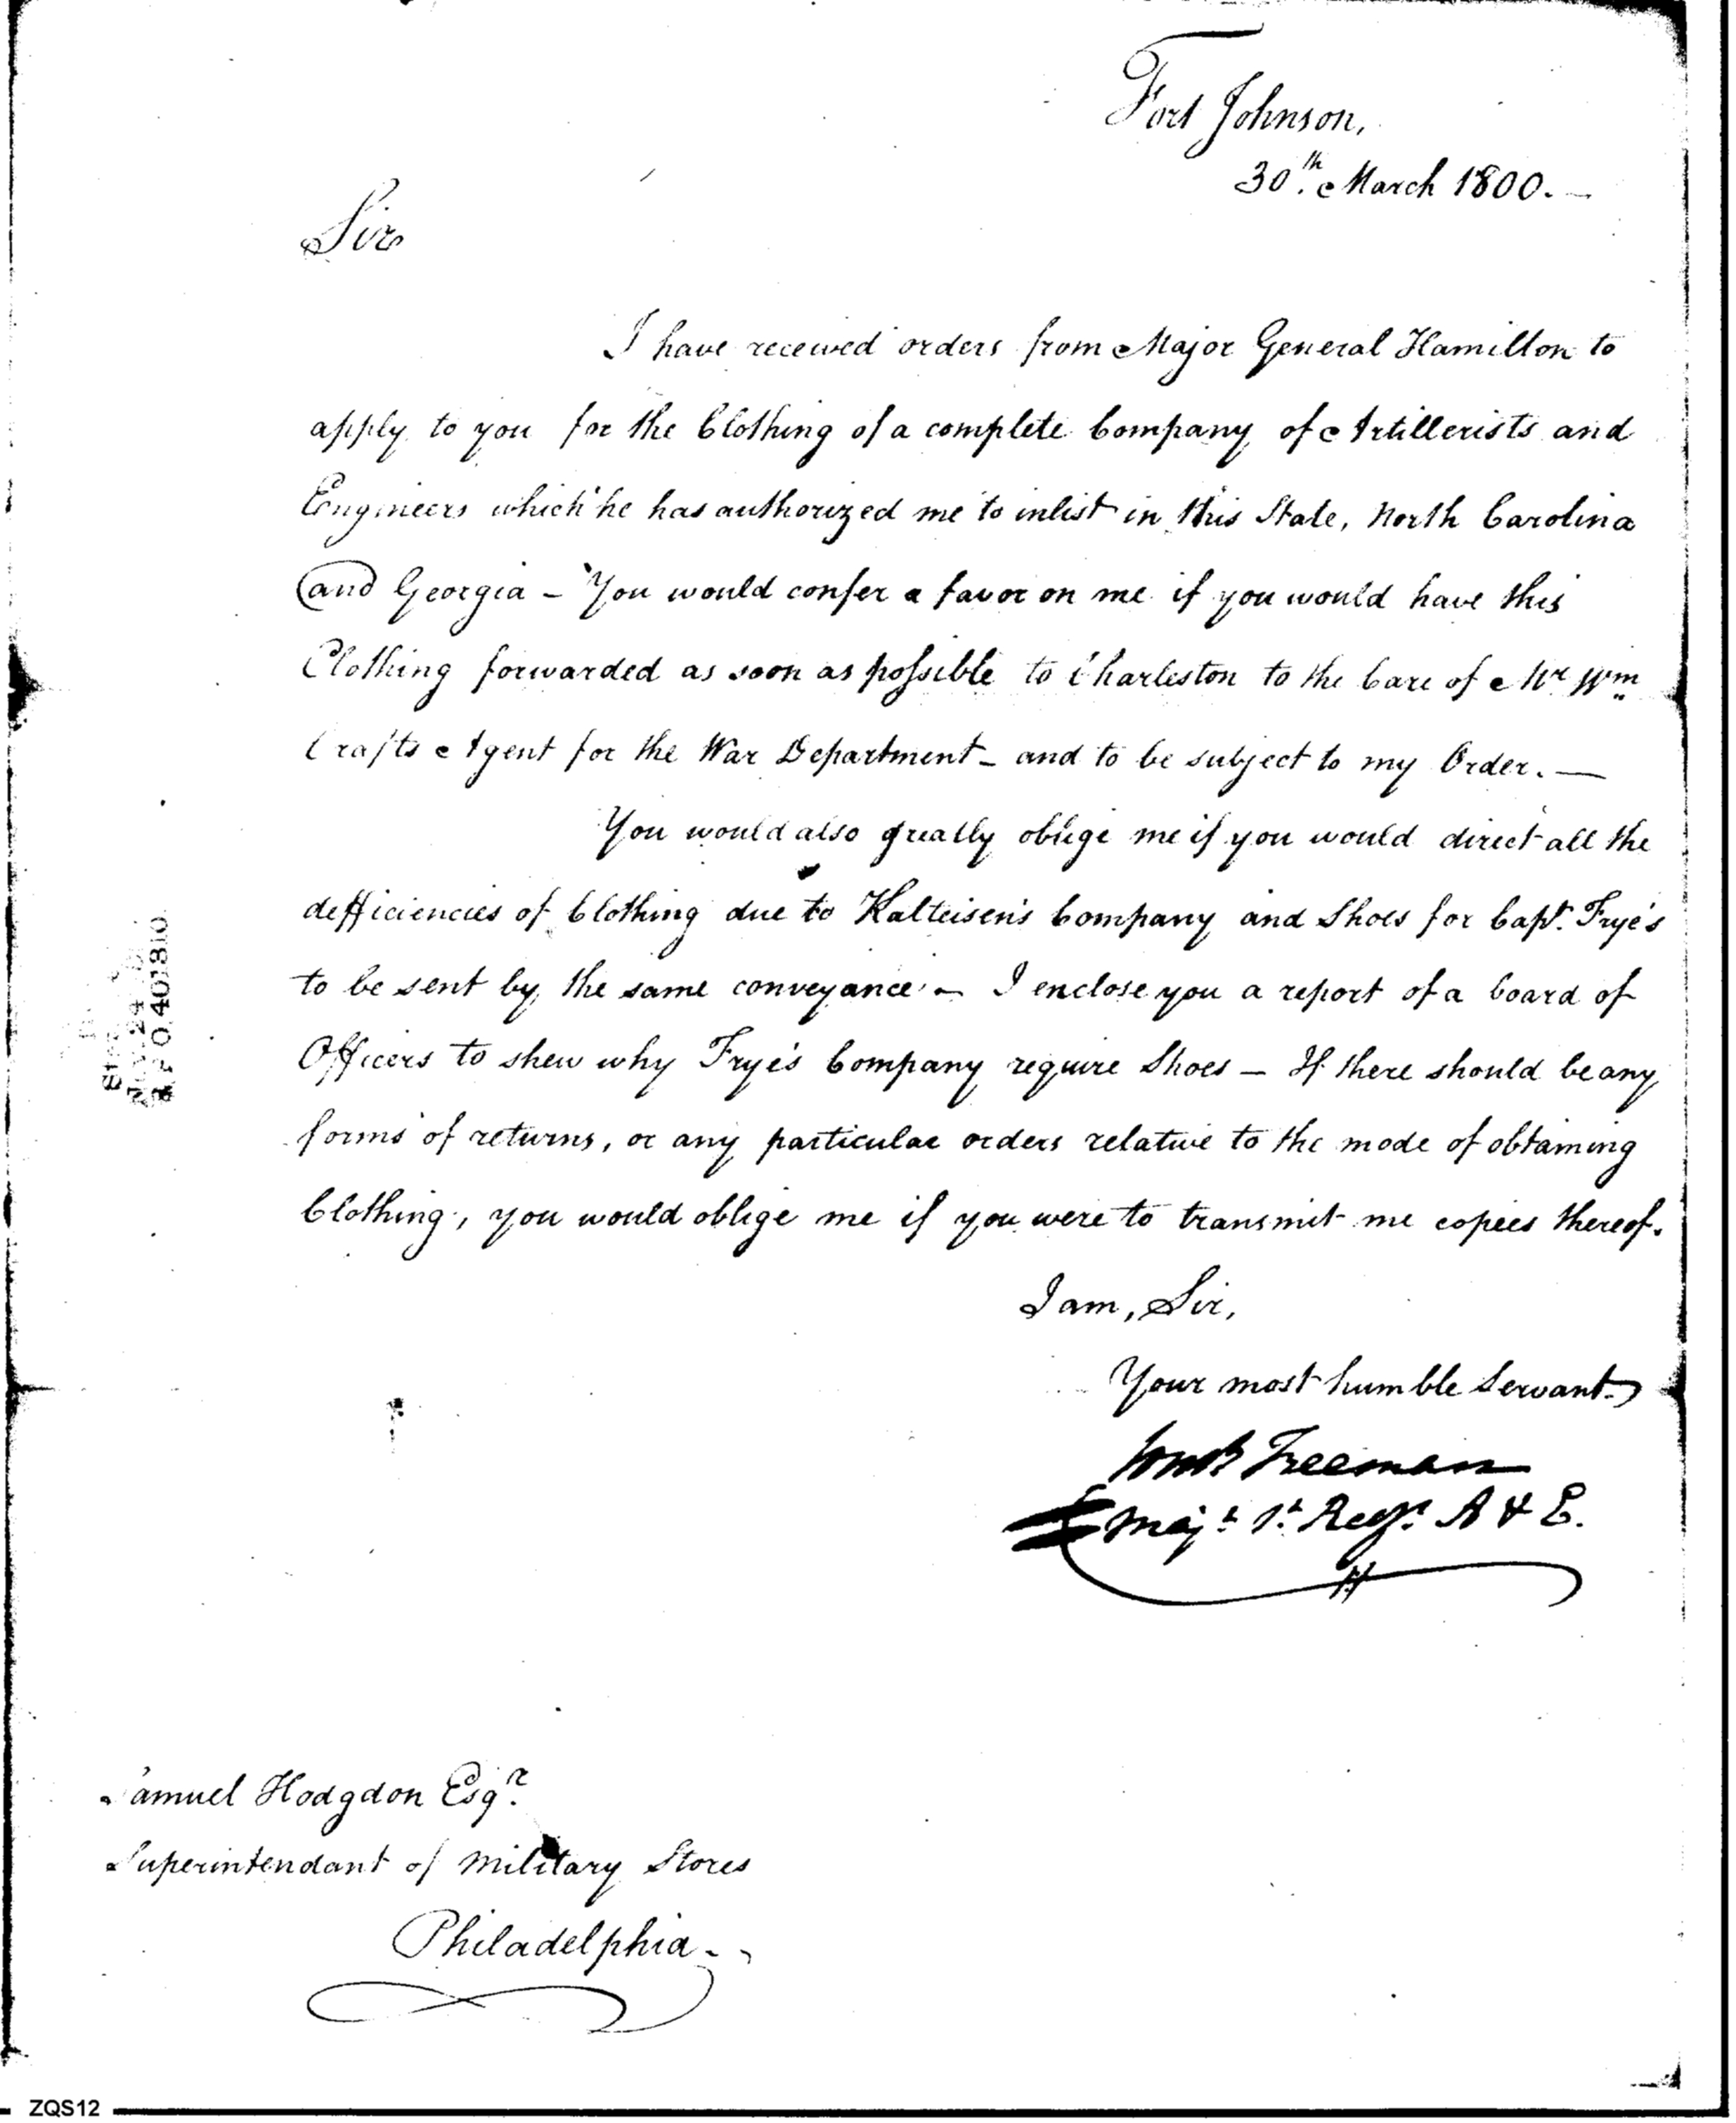 Fort Johnson,
30th. March 1800. —
Sir
I have received orders from Major General Hamilton to
apply to you for the Clothing of a complete Company of Artillerists and
Engineers which he has authorized me to inlist in this State, North Carolina
and Georgia – You would confer a favor on me if you would have this
Clothing forwarded as soon as possible to Charleston to the Care of Mr Wm
Crafts Agent for the War Department – and to be subject to my Order. —
You would also greatly oblige me if you would direct all the
defficiencies of Clothing due to Kalteisen's Company and Shoes for Capt. Frye's
to be sent by the same conveyance – I enclose you a report of a board of
Officers to shew why Frye's Company require Shoes – If there should be any
forms of returns, or any particular orders relative to the mode of obtaining
Clothing, you would oblige me if you were to transmit me copies thereof.
I am, Sir,
Your most humble Servant
Freeman
Majr 1t Regt A & E.
Samuel Hodgdon Esqr.
Superintendant of Military Stores
Philadelphia –
ZQS12